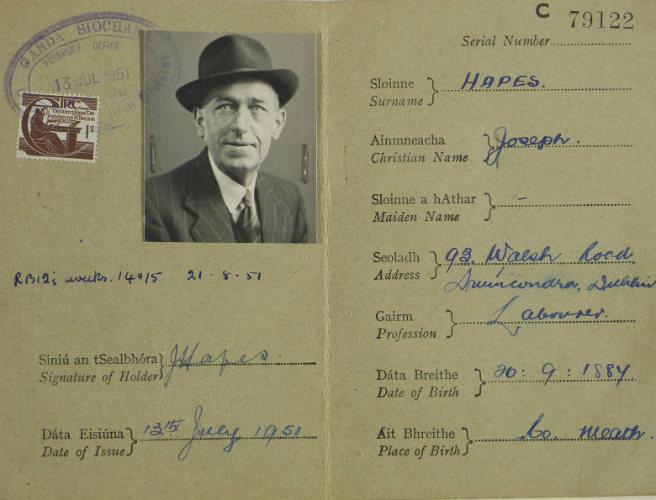 GARDA SÍOCHÁ
PASSPORT OFFICE
13 JUL 1951
ÉIRE
1s
RB12's weeks. 14915 21-8-51
Síniú an tSealbhóra
Signature of Holder
JHapes
Dáta Eisiúna
Date of Issue
13th July 1951
C 79122
Serial Number
Sloinne
Surname
HAPES.
Ainmneacha
Christian Name
Joseph.
Sloinne a hAthar
Maiden Name
-
Seoladh
Address
93 Walsh Road
Drumcondra, Dublin
Gairm
Profession
Labourer.
Dáta Breithe
Date of Birth
20:9:1884
Áit Bhreithe
Place of Birth
Co. Meath.